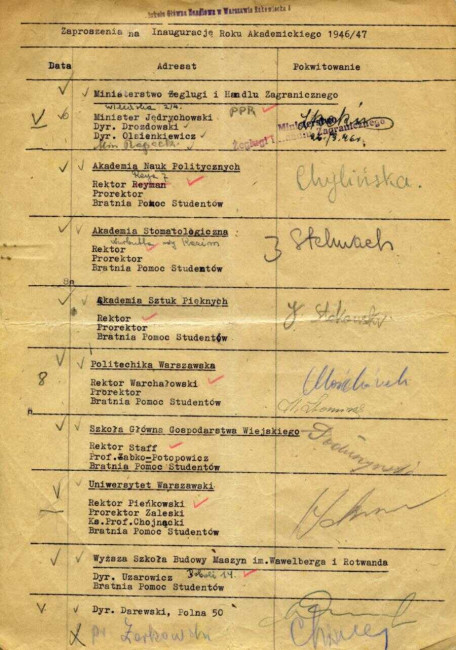 Szkoła Główna Handlowa w Warszawie Rakowiecka 6
Zaproszenia na Inaugurację Roku Akademickiego 1946/47
Data Adresat Pokwitowanie
Ministerstwo Żeglugi i Handlu Zagranicznego
Wiejska 2/4. PPR
Minister Jędrychowski
Dyr. Drozdowski
Dyr. Olzienkiewicz
Min Rapacki
Żeglugi i Handlu Zagranicznego
Akademia Nauk Politycznych
Reja 7
Rektor Reyman Chylińska.
Prorektor
Bratnia Pomoc Studentów
Akademia Stomatologiczna
Rektor Stelmach
Prorektor
Bratnia Pomoc Studentów
Akademia Sztuk Pięknych
Rektor
Prorektor
Bratnia Pomoc Studentów
Politechika Warszawska
8 Rektor Warchałowski
Prorektor
Bratnia Pomoc Studentów
Szkoła Główna Gospodarstwa Wiejskiego
Rektor Staff
Prof.Żabko-Potopowicz
Bratnia Pomoc Studentów
Uniwersytet Warszawski
Rektor Pieńkowski
Prorektor Zaleski
Ks.Prof.Chojnącki
Bratnia Pomoc Studentów
Wyższa Szkoła Budowy Maszyn im.Wawelberga i Rotwanda
Dyr. Uzarowicz
Dyr. Darewski, Polna 50
Żarkowski